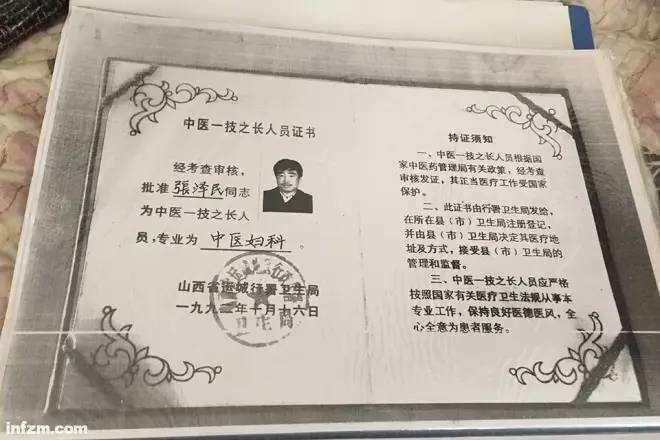 中医一技之长人员证书
经考查审核，
批准 張泽民 同志
为中医一技之长人
员，专业为 中医妇科 。
山西省运城行署卫生局
一九九二年十月十六日
卫生局
持证须知
一、中医一技之长人员根据国
家中医药管理局有关政策，经考查
审核发证，其正当医疗工作受国家
保护。
二、此证书由行署卫生局发给，
在所在县（市）卫生局注册登记，
并由县（市）卫生局决定其医疗地
址及方式，接受县（市）卫生局的
管理和监督。
三、中医一技之长人员应严格
按照国家有关医疗卫生法规从事本
专业工作，保持良好医德医风，全
心全意为患者服务。
infzm.com